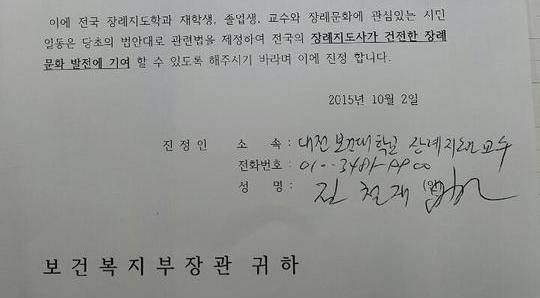 이에 전국 장례지도학과 재학생, 졸업생, 교수와 장례문화에 관심있는 시민
일동은 당초의 법안대로 관련법을 제정하여 전국의 장례지도사가 건전한 장례
문화 발전에 기여 할 수 있도록 해주시기 바라며 이에 진정 합니다.
2015년 10월 2일
진정인 소 속 : 대전보건대학교 장례지도과 교수
전화번호 :
성 명 :
보건복지부장관 귀하